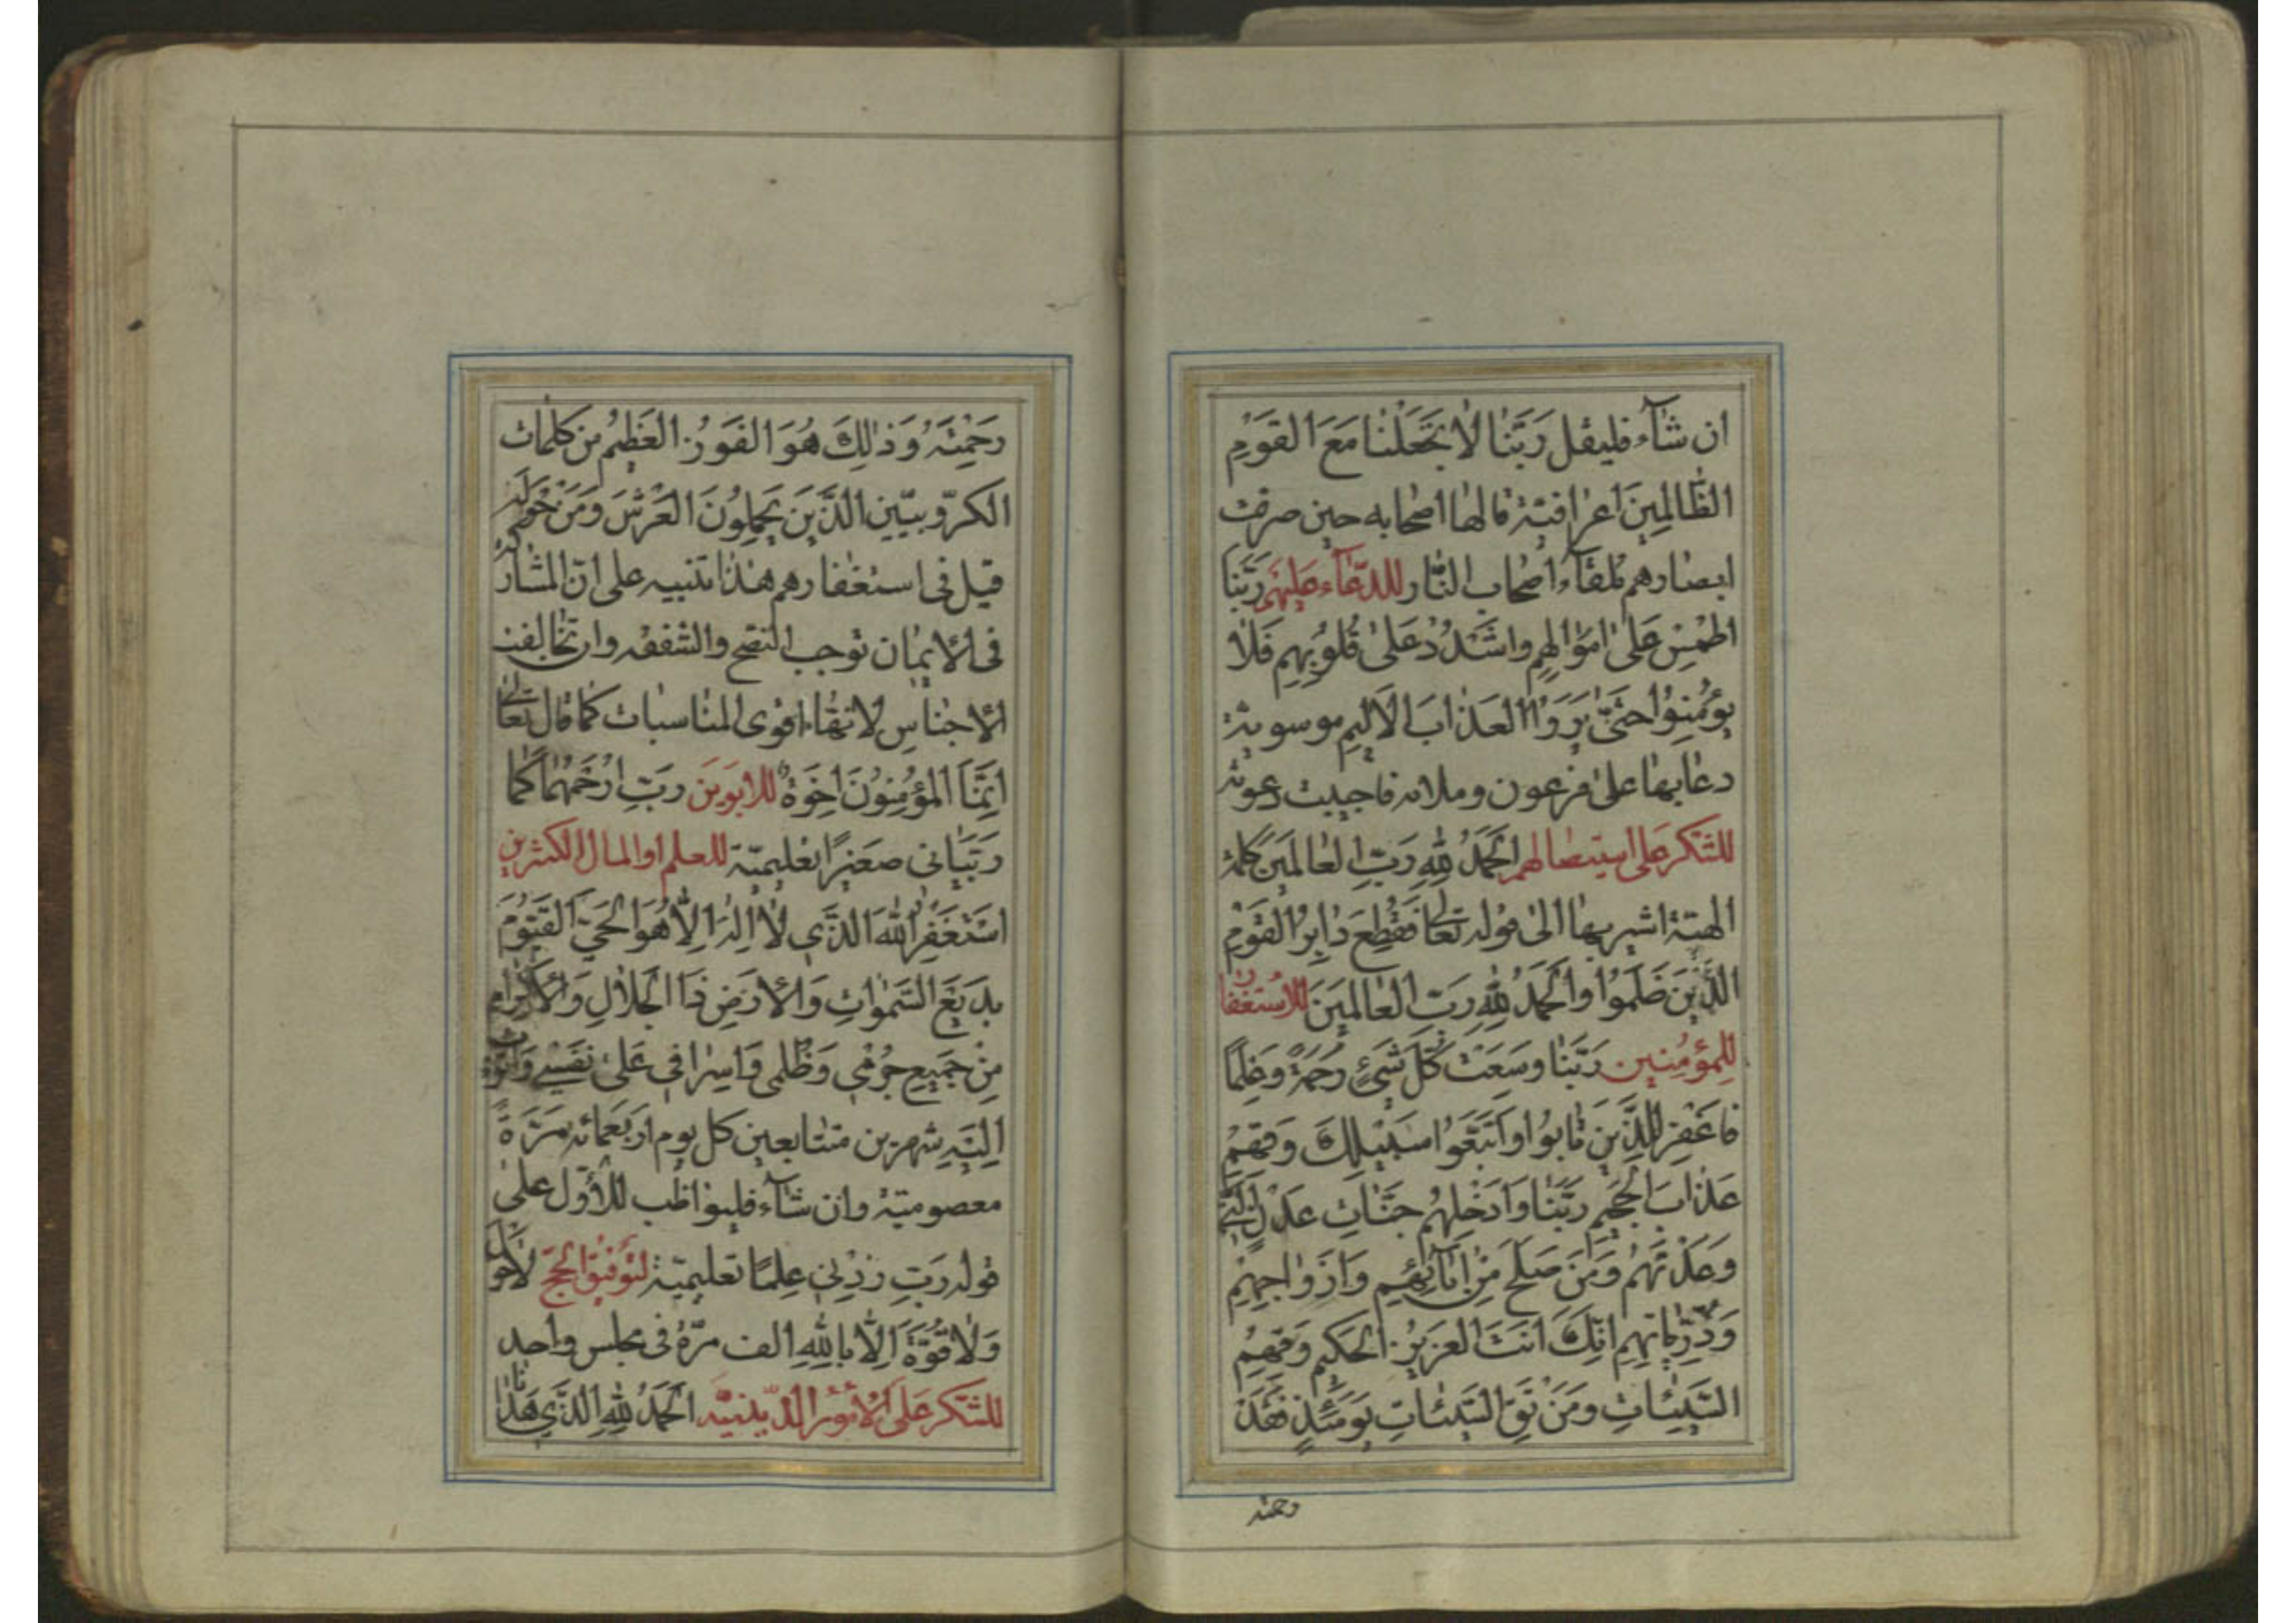 ان شآء فليقل رَبَّنا لا تَجْعَلْنا مَعَ القَوْمِ
الظّالِمِينَ اعرافيّة قالها اصحابه حين صرفت
ابصارهم تلقآء اصحاب النّار للدّعآء عليهم رَبَّنا
اطْمِسْ عَلىٰ امْوالِهِم واشْدُدْ عَلىٰ قُلُوبِهِم فَلا
يُؤْمِنُوا حتّىٰ يَرَوُا العَذابَ الاَليم موسويّة
دعا بها علىٰ فرعون وملائه فاجيبت دعوته
للشّكر على استيصالهم الحَمْدُ لِلّهِ رَبِّ العالَمينَ كلمة
الهيّة اشير بها الىٰ قوله تعالى فَقُطِعَ دابِرُ القَوْمِ
الَّذينَ ظَلَمُوا والحَمْدُ لِلّهِ رَبِّ العالَمينَ للاستغفار
للمؤمنين رَبَّنا وَسِعْتَ كُلَّ شَيْءٍ رَحْمَةً وَعِلْمًا
فَاغْفِرْ لِلَّذِينَ تابُوا واتَّبَعُوا سَبيلَكَ وَقِهِمْ
عَذابَ الجَحيم رَبَّنا وَادْخِلْهُم جَنّاتِ عَدْنٍ الَّتي
وَعَدْتَهُم وَمَنْ صَلَحَ مِنْ اٰبآئِهِم وَازْواجِهِمْ
وَذُرِّيّاتِهِم انَّكَ انْتَ العَزيزُ الحَكيم وَقِهِمُ
السَّيِّئاتِ وَمَنْ تَقِ السَّيِّئاتِ يَوْمَئِذٍ فَقَدْ
رحمته
رَحِمْتَهُ وَذٰلِكَ هُوَ الفَوْزُ العَظيمُ من كلمات
الكرّوبيّين الَّذينَ يَحْمِلُونَ العَرْشَ وَمَنْ حَوْلَه
قيل فى استغفارهم هذا تنبيه على انّ المشاركة
فى الايمان توجب النصح والشفقه وان تخالفت
الاجناس لانّها اقوى المناسبات كما قال تعالى
اِنَّمَا المُؤْمِنُونَ اِخْوَةٌ للابوين رَبِّ ارْحَمْهُما كَما
رَبَّياني صَغيرًا تعليميّة للعلم او المال الكثيرين
اَسْتَغْفِرُ اللهَ الَّذي لا اِلٰهَ اِلّا هُوَ الحَيّ القَيُّومَ
بَديعَ السَّمٰواتِ وَالاَرْضِ ذَا الجَلالِ وَالاِكْرامِ
مِنْ جَميعِ جُرْمي وَظُلْمي وَاِسْرافي عَلىٰ نَفْسي وَاَتُوبُ
اِلَيْهِ شهرين متتابعين كل يوم اربعمائه مرّة
معصوميّة وان شآء فليواظب للاوّل على
قوله رَبِّ زِدْني عِلْمًا تعليميّة لتوفيق الحجّ لا حول
وَلا قُوَّةَ اِلّا بِاللهِ الف مرّة فى مجلس واحد
للشّكر على الامور الدّينيّه الحَمْدُ لِلّهِ الَّذي هَدانا